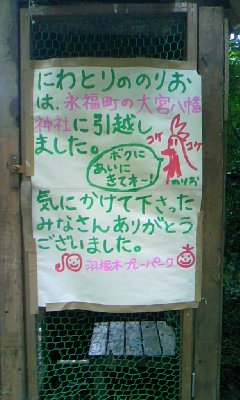 にわとりののりお
は、永福町の大宮八幡
神社に引越し
ました。
コケ
コケ
ボクに
あいに
きてネー！
のりお
気にかけて下さった
みなさんありがとう
ございました。
羽根木プレーパーク